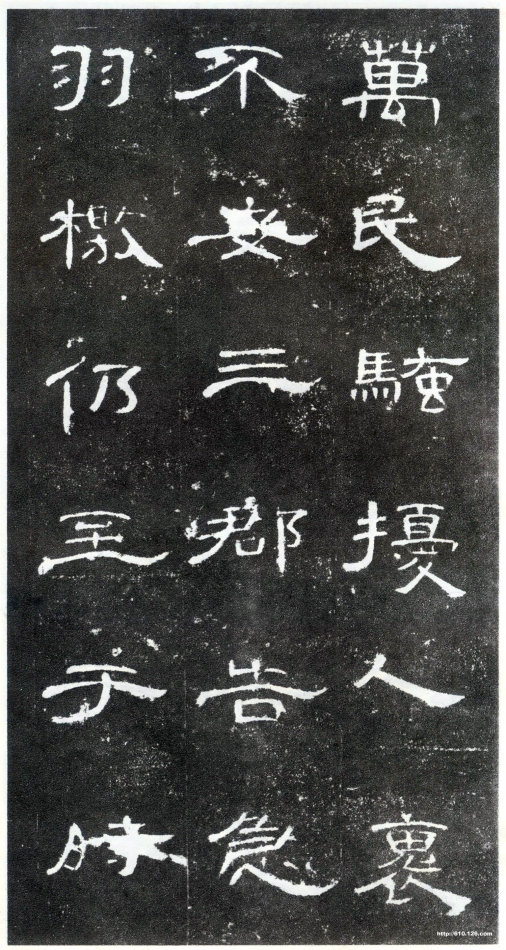 萬民騷擾人褱
不安三郡告急
羽檄仍至于時
http://610.126.com